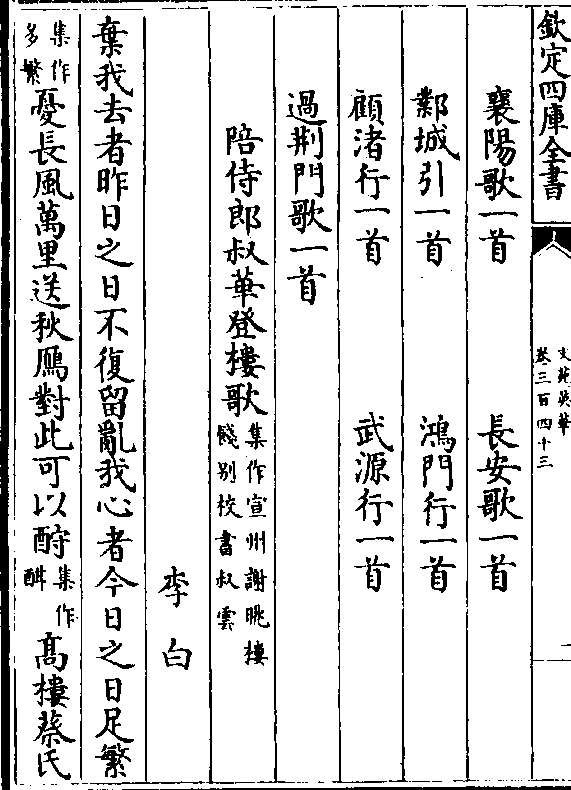 欽定四庫全書
文苑英華
卷三百四十三
二
襄陽歌一首 長安歌一首
鄴城引一首 鴻門行一首
顧渚行一首 武源行一首
過荆門歌一首
陪侍郎叔華登樓歌集作宣州謝眺樓餞别校書叔雲
李白
棄我去者昨日之日不復留亂我心者今日之日足繁
集作多繁憂長風萬里送秋鴈對此可以酧集作酣高樓蔡氏